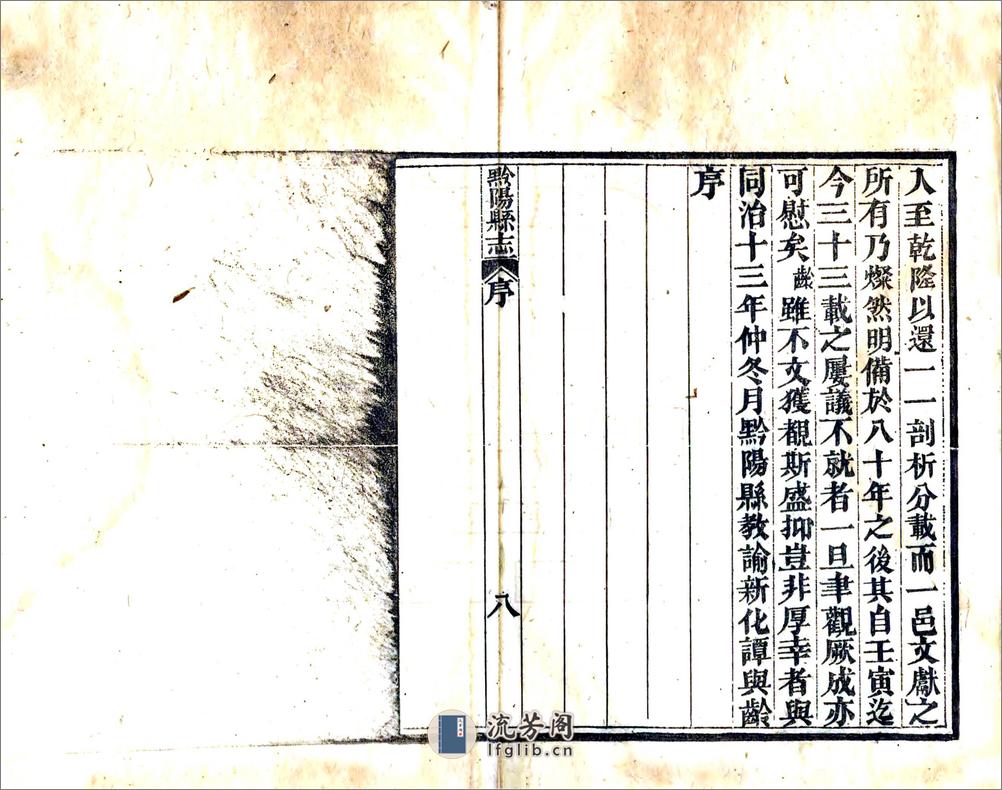 入至乾隆以還一一剖析分載而一邑文獻之
所有乃燦然明備於八十年之後其自壬寅迄
今三十三載之屢議不就者一旦聿觀厥成亦
可慰矣齡雖不文獲覩斯盛抑豈非厚幸者與
同治十三年仲冬月黔陽縣教諭新化譚與齡
序
黔陽縣志
序
八
流芳阁
lfglib.cn